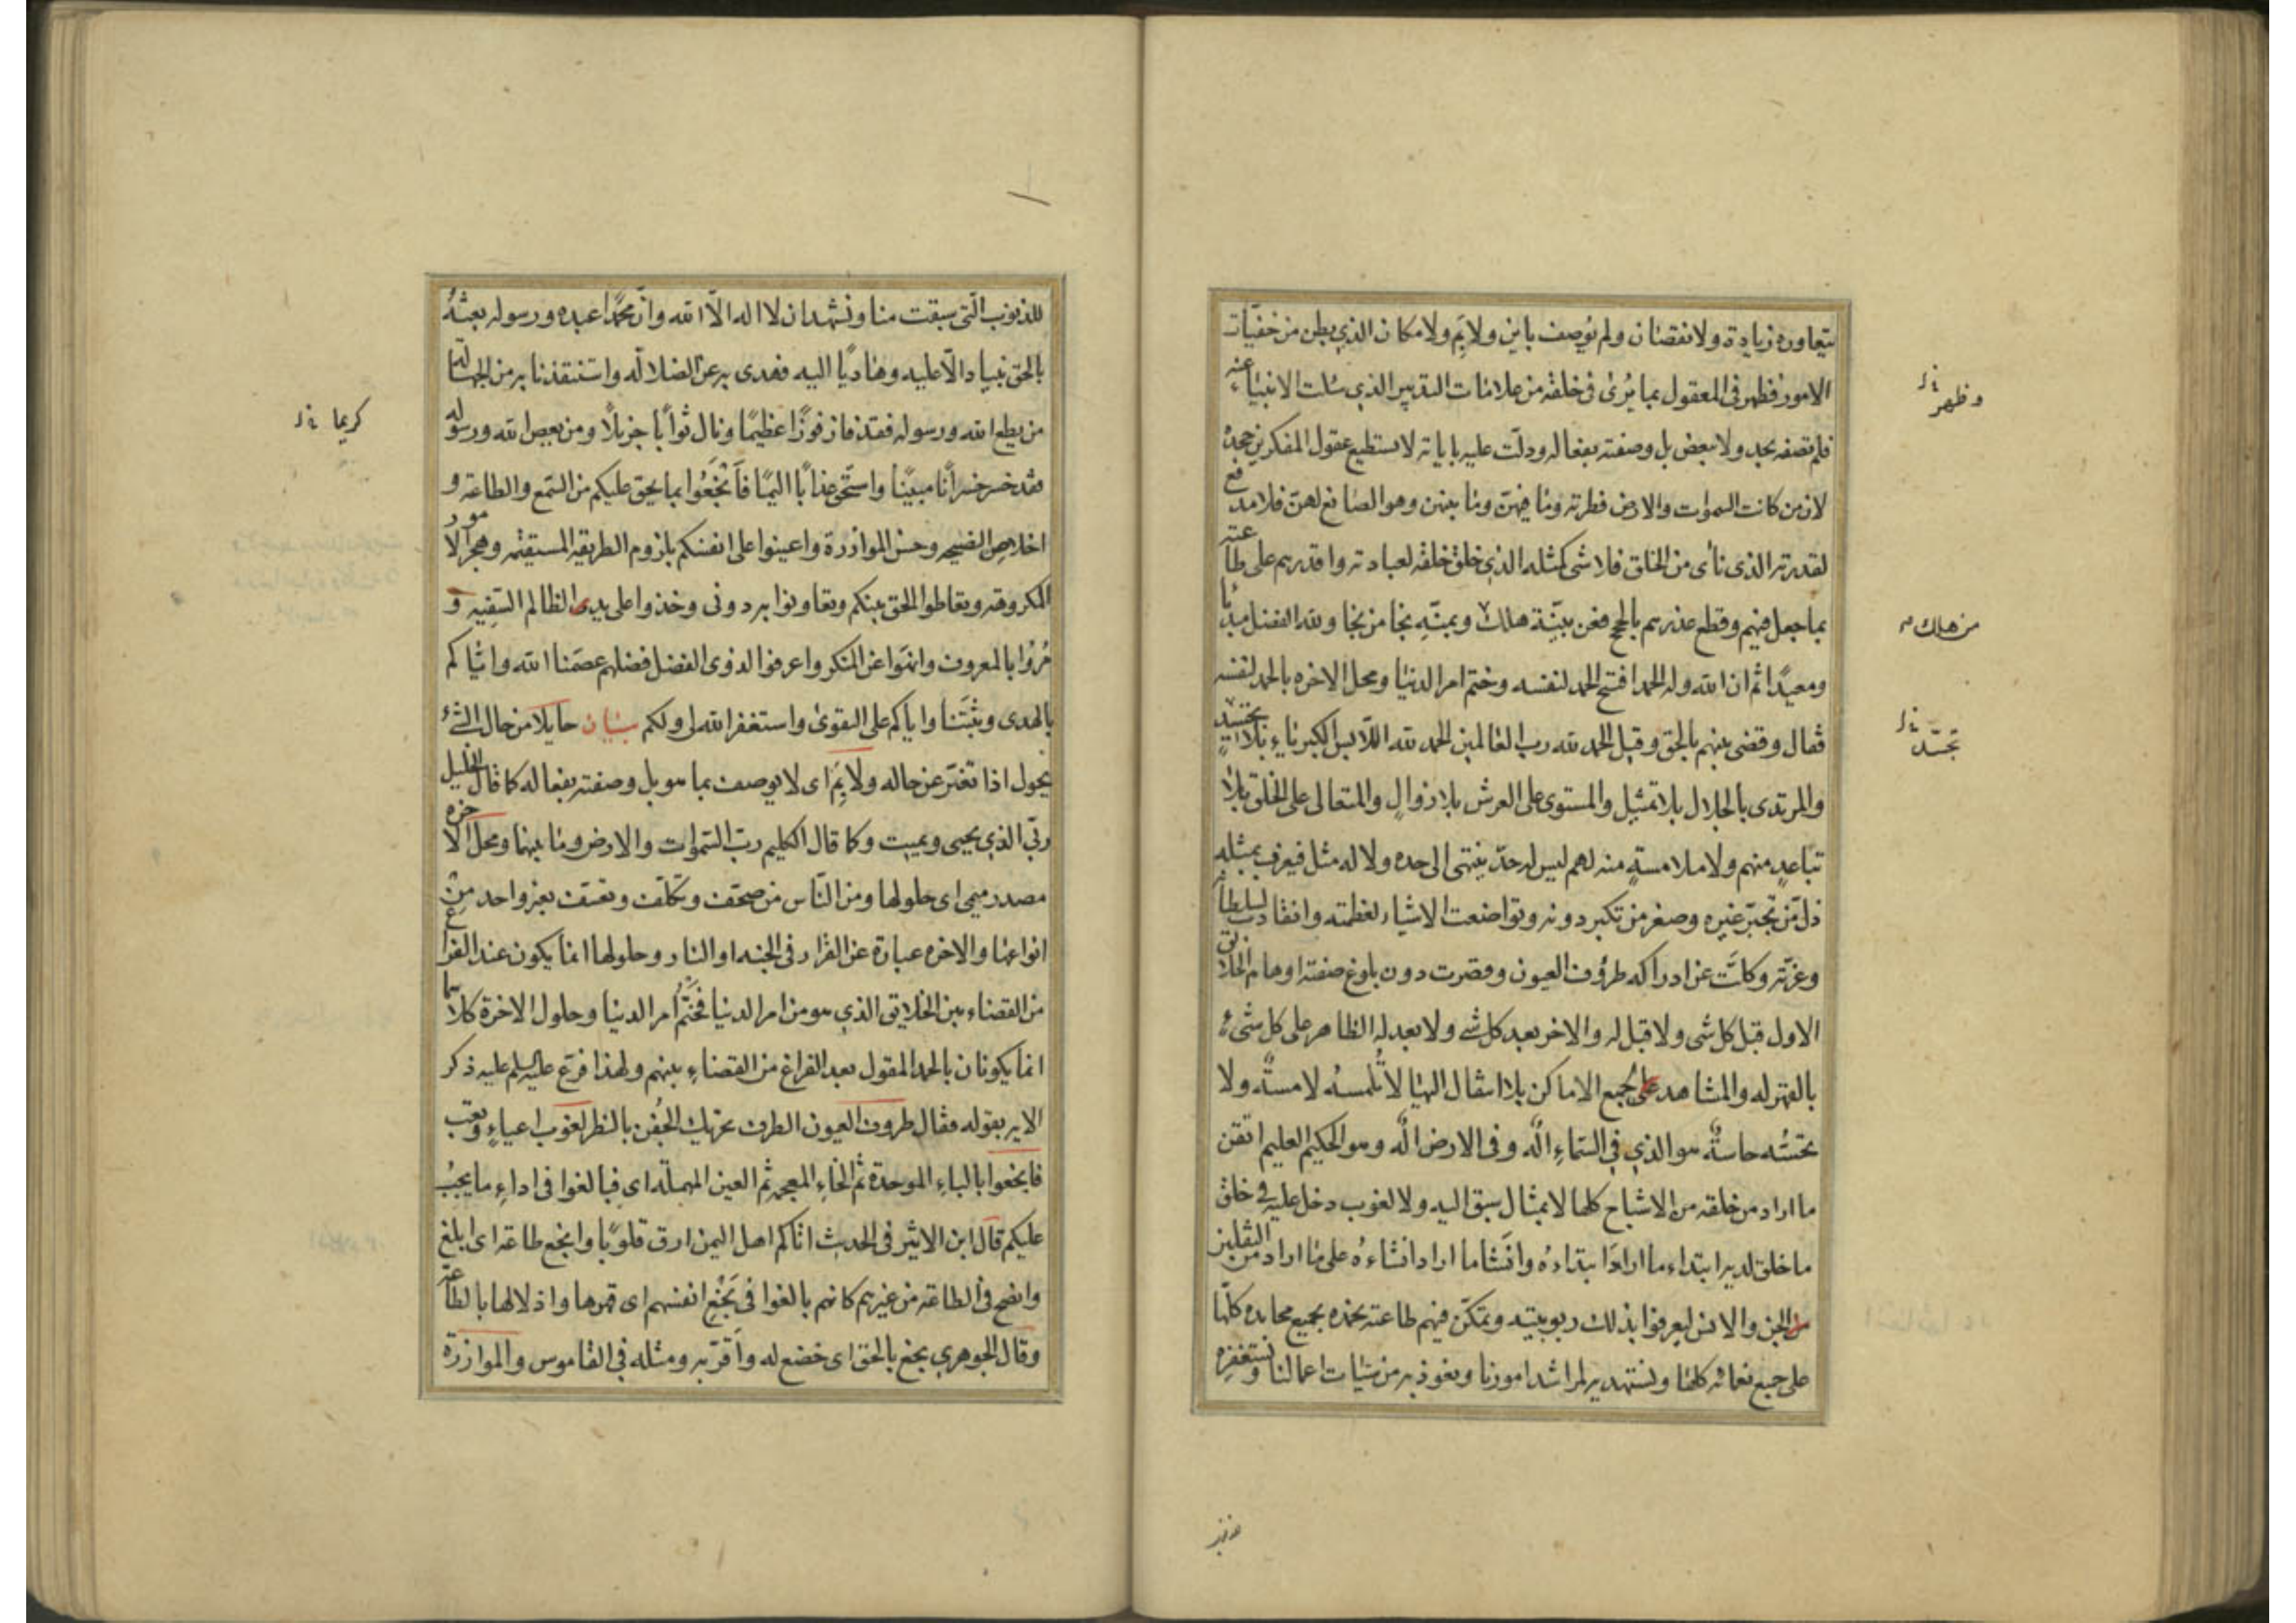 يتعاوره زيادة ولا نقصان ولم يوصف باين ولا بم ولا مكان الذي بطن من خفيّات
الامور فظهر في المعقول بما يُرى في خلقه من علامات التدبير الذي سئلت الانبياء عنه
فلم تصفه بحد ولا ببعض بل وصفته بفعاله ودلّت عليه باياته لا يستطيع عقول المفكرين جحده
لان من كانت السموات والارض فطرته وما فيهنّ وما بينهن وهو الصانع لهنّ فلا مدفع
لقدرته الذي نأى من الخلق فلا شى كمثله الذي خلق خلقه لعبادته واقدرهم على طاعته
بما جعل فيهم وقطع عذرهم بالحجج فعن بيّنة هلك وبمنّه نجا من نجا ولله الفضل مبدئا
ومعيدًا ثم ان الله وله الحمد افتتح الحمد لنفسه وختم امر الدنيا ومحل الاخره بالحمد لنفسه
فقال وقضى بينهم بالحق وقيل الحمد لله رب العالمين الحمد لله اللابس الكبرياء بلا تجسيد
والمرتدى بالجلال بلا تمثيل والمستوى على العرش بلا زوالٍ والمتعالى على الخلق بلا
تباعدٍ منهم ولا ملامسةٍ منه لهم ليس له حدّ ينتهى الى حده ولا له مثل فيعرف بمثله
ذلّ من تجبّر غيره وصغر من تكبر دونه وتواضعت الاشياء لعظمته وانقادت لسلطانه
وعزّته وكلّت عن ادراكه طروف العيون وقصرت دون بلوغ صفته اوهام الخلائق
الاول قبل كل شى ولا قبل له والاخر بعد كل شے ولا بعد له الظاهر على كل شىء
بالقهر له والمشاهد على لجميع الاماكن بلا انتقال اليها لا تُلمسهُ لامسةٌ ولا
تحسّه حاسةٌ هو الذي في السّماءِ الٰه وفى الارض الٰه وهو الحكيم العليم اتقن
ما اراد من خلقه من الاشباح كلها لا بمثال سبق اليه ولا لغوب دخل عليه في خلق
ما خلق لديه ابتداء ما ارادَ ابتداءهُ وانَشا ما اراد انشاءهُ على ما اراد من الثقلين
من الجن والانس ليعرفوا بذلك ربوبيته وتمكّن فيهم طاعته نحمده بجميع محامده كلّها
على جميع نعمائه كلها ونستهديه لمراشد امورنا ونعوذ به من سيّئات اعمالنا ونستغفره
وظهر خ ل
من هلك صح
تجسّد خ ل
للذنوب الّتى سبقت منا ونشهد ان لا اله الّا الله وانّ محمّدًا عبده ورسوله بعثهُ
بالحق نبيا دالّا عليه وهاديًا اليه فهدى به من الضلالة واستنقذنا به من الجهالة
من يطع الله ورسوله فقد فاز فوزًا عظيمًا ونال ثوابًا جزيلًا ومن يعص الله ورسوله
فقد خسر خسرانًا مبينًا واستحقّ عذابًا اليمًا فاَبْخَعُوا بما يحق عليكم من السّمع والطاعة و
اخلاص النصيحه وحسن الموازرة واعينوا على انفسكم بلزوم الطريقه المستقيمه وهجر الامور
المكروهه وتعاطوا الحق بينكم وتعاونوا به دونى وخذوا على يدى الظالم السّفيه و
مُرُوا بالمعروف وانهَوا عن المنكر واعرفوا لذوى الفضل فضلهم عصَمنا الله واياكم
بالهدى وثبّتَنا واياكم على التقوى واستغفر الله لى ولكم بيان حايلا من حال الشىء
يحول اذا تغيّر عن حاله ولا بِمَ اى لا يوصف بما هو بل وصفته بفعاله كما قال الخليل
ربّي الذي يحيى ويميت وكما قال الكليم رب السّموات والارض وما بينهما ومحل الاخره
مصدر ميمى اى حلولها ومن النّاس من صحّف وتكلّف وتعسّف بغير واحد من
انواعها والاخره عبارة عن القرار فى الجنه او النار وحلولها انما يكون عند الفراغ
من القضاء بين الخلايق الذي هو من امر الدنيا فختْمُ امر الدنيا وحلول الاخرة كلاهما
انما يكونان بالحمد المقول بعد الفراغ من القضاءِ بينهم ولهذا فرّع عليه السلم عليه ذكر
الايه بقوله فقال طروف العيون الطرف تحريك الجُفن بالنظر لغوب اعياءٍ وتعب
فابخعوا بالباءِ الموحدة ثم الخاءِ المعجمه ثم العين المهملة اى فبالغوا فى اداءِ ما يجبُ
عليكم قال ابن الاثير فى الحدث اتاكم اهل اليمن ارق قلوبًا وابخع طاعة اى ابلغ
وانصح فى الطاعة من غيرهم كانهم بالغوا فى بَخْعِ انفسهم اى قهرها واذلالها بالطاعة
وقال الجوهرى بخع بالحق اى خضع له واَقرّ به ومثله فى القاموس والموازرة
كريما خ ل